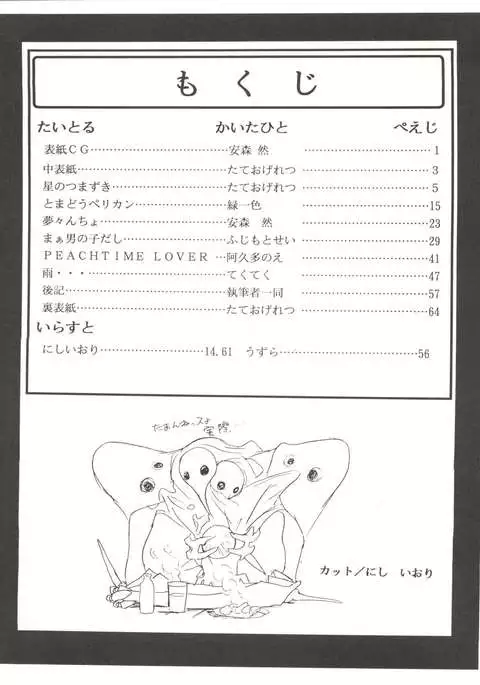 もくじ
たいとる かいたひと ぺえじ
表紙ＣＧ……………安森 然……………1
中表紙……………たておげれつ……………3
星のつまずき……………たておげれつ……………5
とまどうペリカン……………緑一色……………15
夢々んちょ……………安森 然……………23
まぁ男の子だし……………ふじもとせい……………29
ＰＥＡＣＨＴＩＭＥ ＬＯＶＥＲ…阿久多のえ……………41
雨・・・……………てくてく……………47
後記……………執筆者一同……………57
裏表紙……………たておげれつ……………64
いらすと
にしいおり……………14.61 うずら……………56
実際
カット／にし いおり